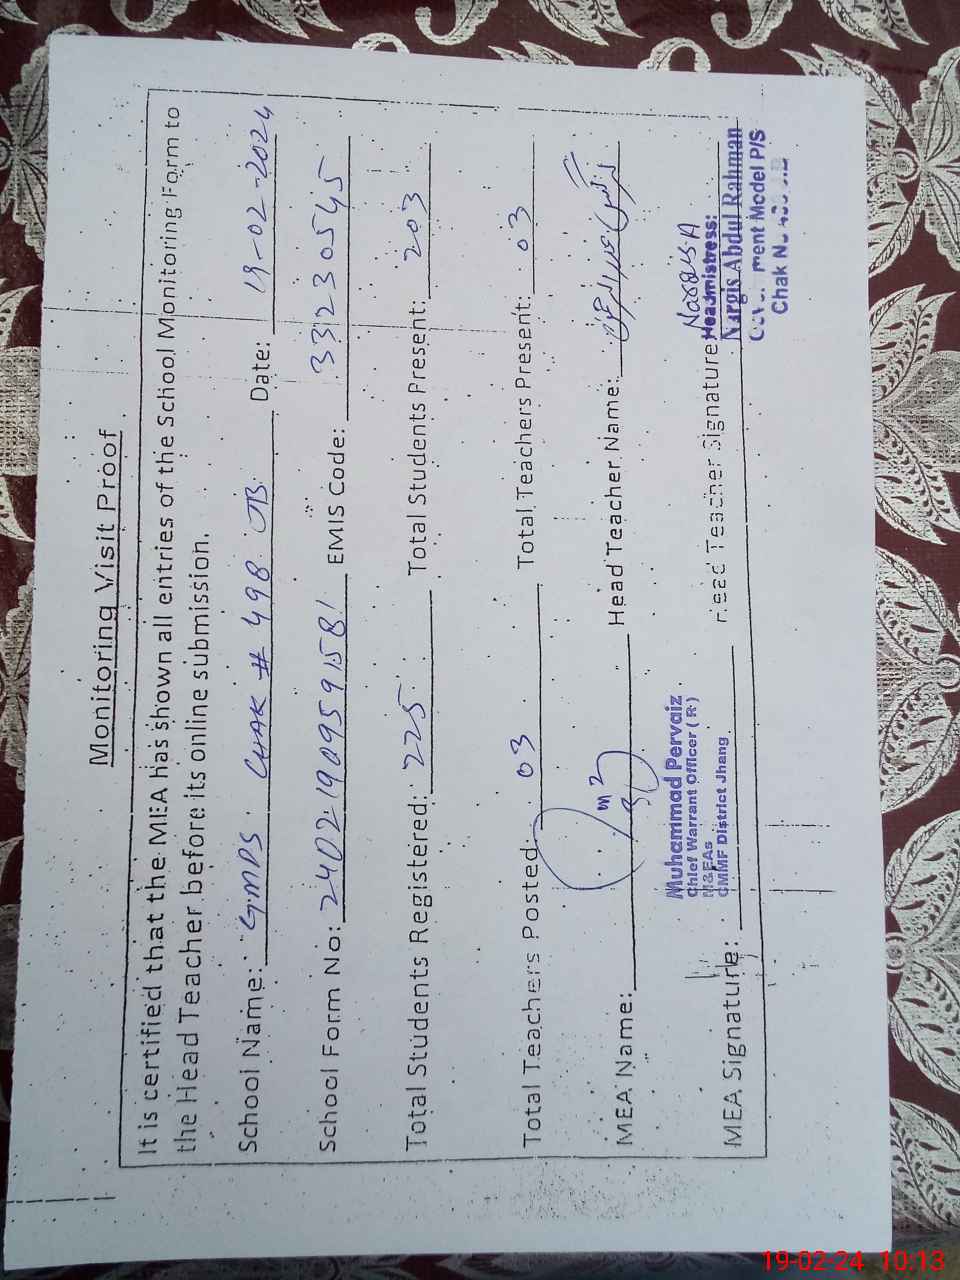 Monitoring Visit Proof
It is certified that the MEA has shown all entries of the School Monitoring Form to
the Head Teacher before its online submission.
School Name: GMPS. CHAK # 498 JB. Date: 19-02-2024
School Form No: 2402190959158! EMIS Code: 33230545
Total Students Registered: 225. Total Students Present: 203
Total Teachers Posted: 03 Total Teachers Present: 03
MEA Name: Head Teacher Name:
Muhammad Pervaiz
Chief Warrant Officer ( R )
M&EAs
CMMF District Jhang
MEA Signature: Head Teacher Signature:
Nargis A
Headmistress:
Nargis Abdul Rahman
Government Model P/S
Chak No
19-02-24 10:13